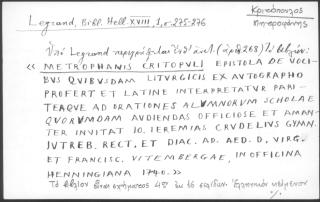 Legrand, Bibl. Hell. XVIII, 1, σ. 275-276
Κριτόπουλος
Μητροφάνης
Ὑπὸ Legrand περιγράφεται (ἀρ. 268) τὸ βιβλίον:
« METROPHANIS CRITOPULI EPISTOLA DE VOCI-
BUS QUIBUSDAM LITURGICIS EX AUTOGRAPHO
PROFERT ET LATINE INTERPRETATUR PARI-
TERQUE AD ORATIONES ALUMNORUM SCHOLAE
QUORUMDAM AUDIENDAS OFFICIOSE ET AMAN-
TER INVITAT IO. IEREMIAS CRUDELIUS GYMN.
JUTREB. RECT. ET DIAC. AD. AED. D. VIRG.
ET FRANCISC. VITEMBERGAE, IN OFFICINA
HENNINGIANA 1740. »
Τὸ βιβλίον εἶναι σχήματος 4ον ἐκ 16 σελίδων. Ἑλληνικὸν κείμενον
./.